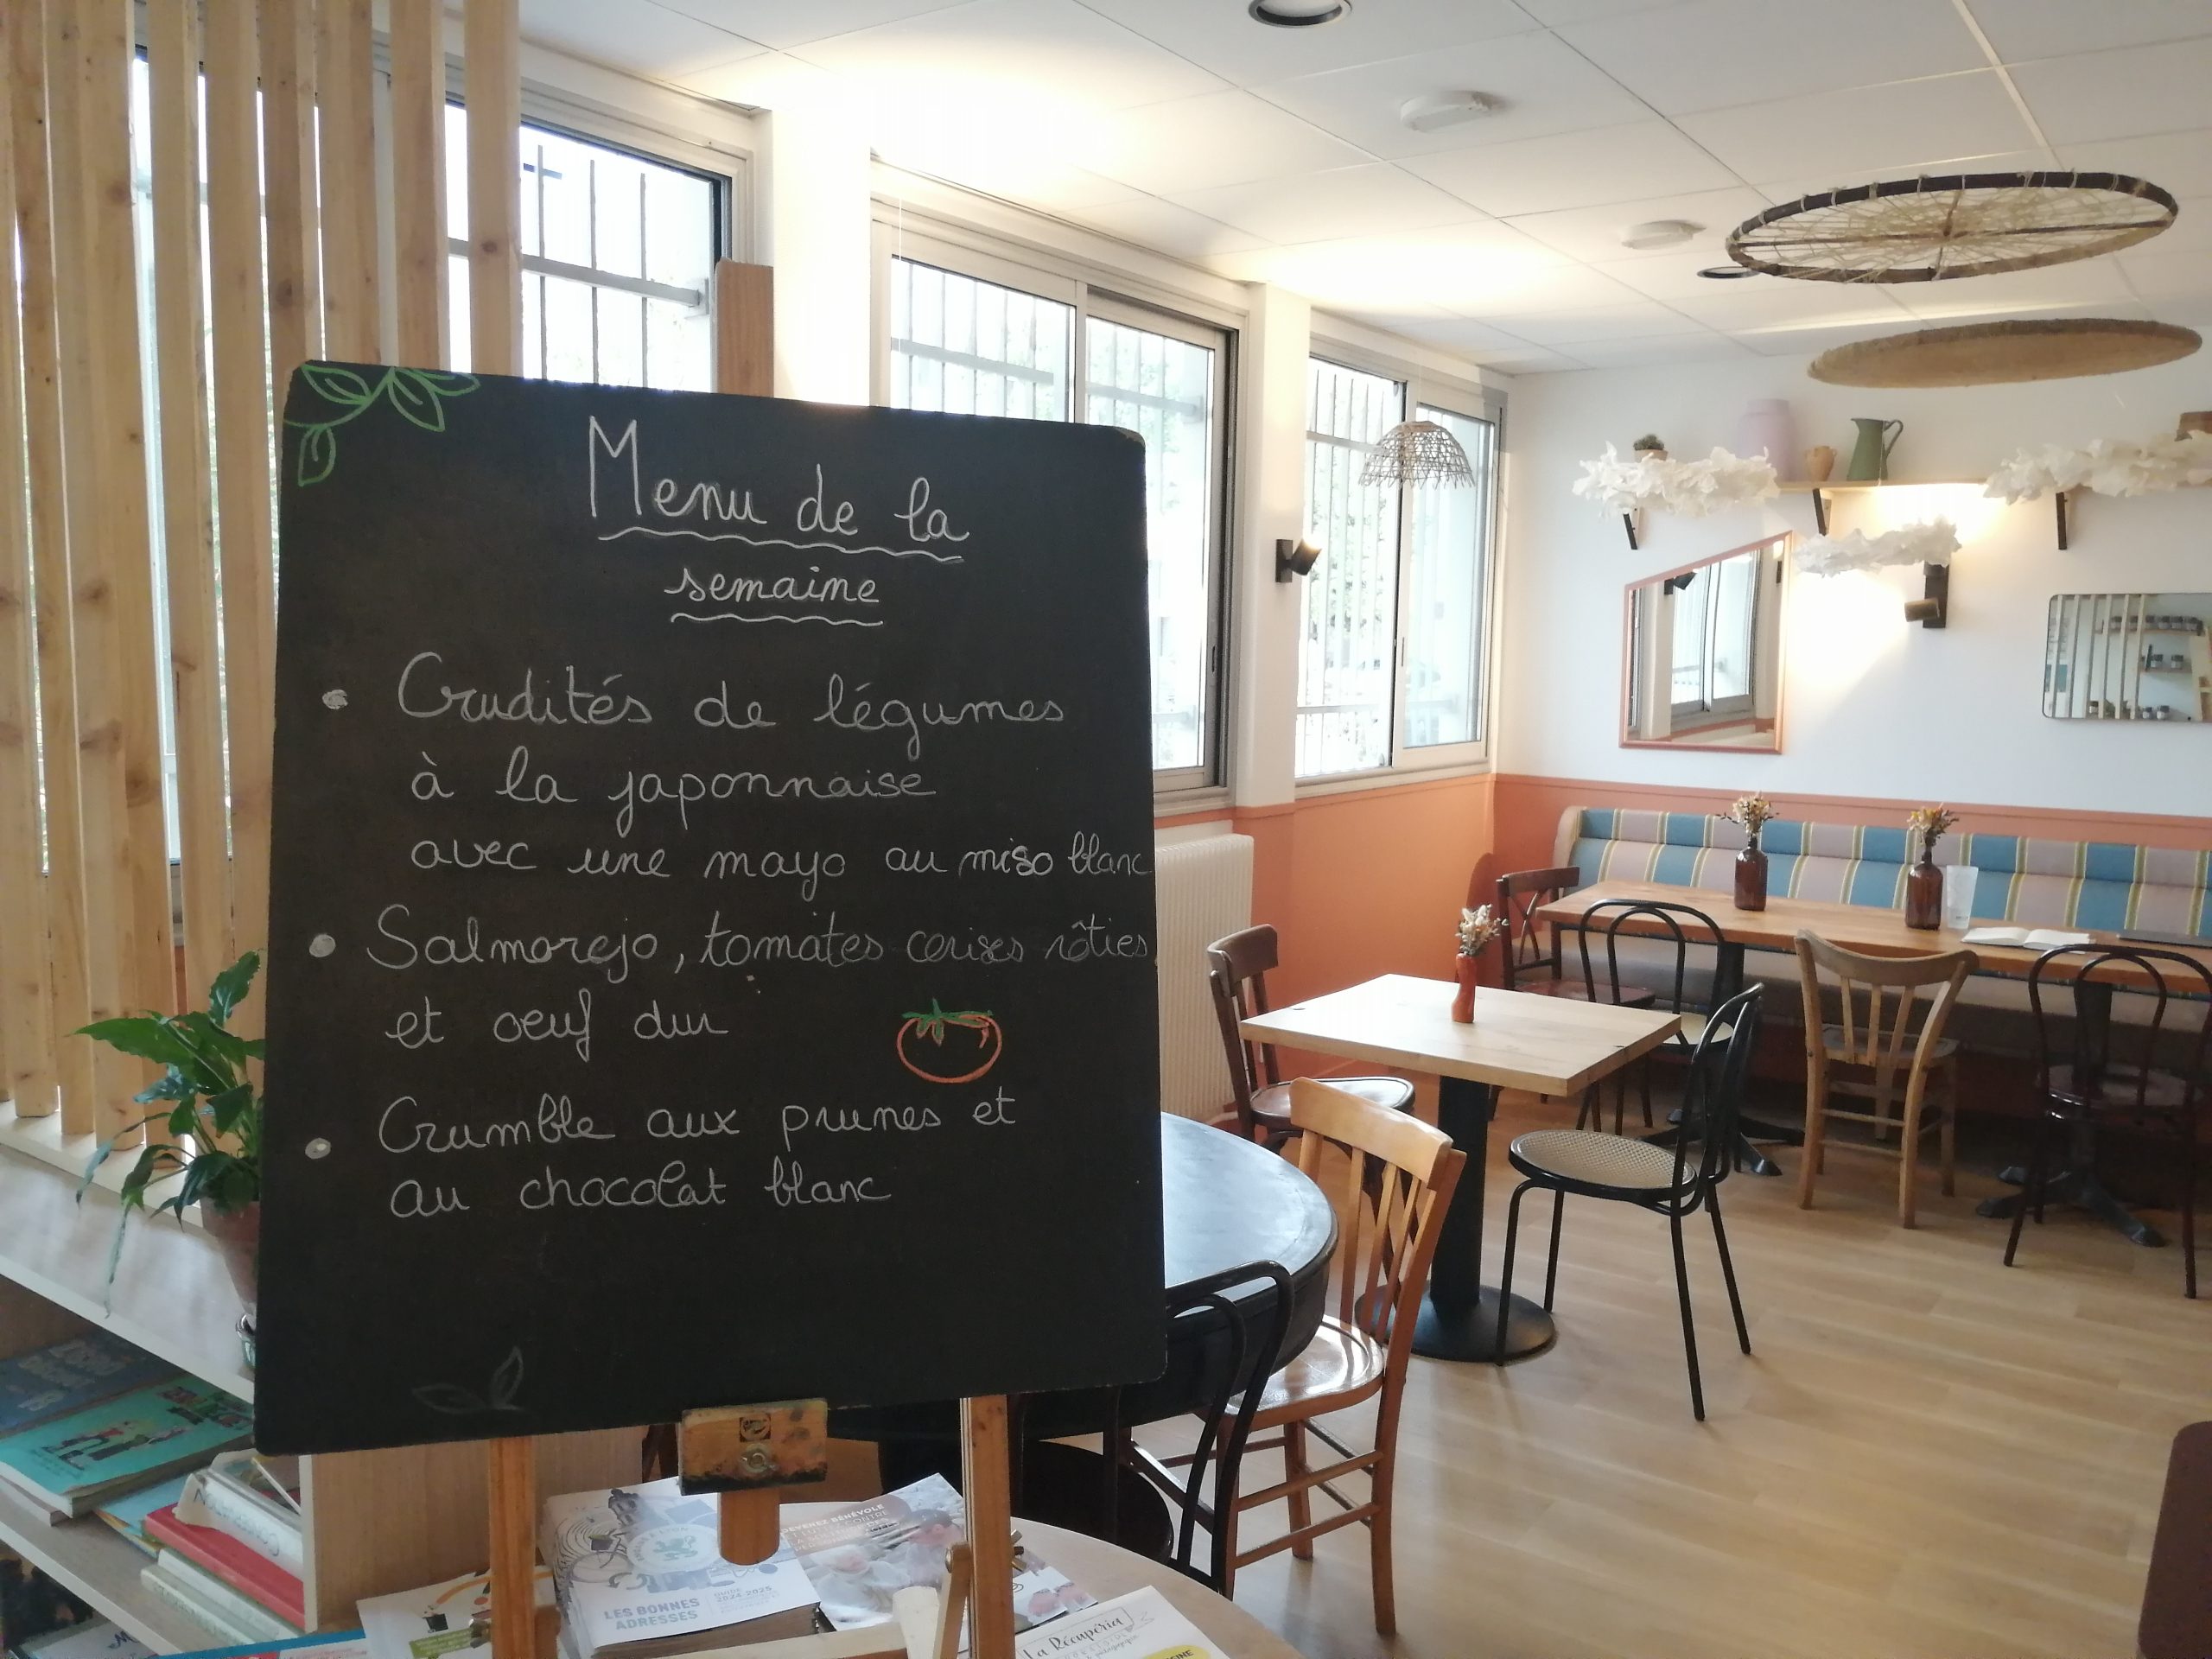 Menu de la
semaine
• Crudités de légumes
à la japonnaise
avec une mayo au miso blanc
• Salmorejo, tomates cerises rôties
et oeuf dur
• Crumble aux prunes et
au chocolat blanc
GUIDE
2024-2025
LES BONNES
ADRESSES
DEVENEZ BÉNÉVOLE
La Récupéria